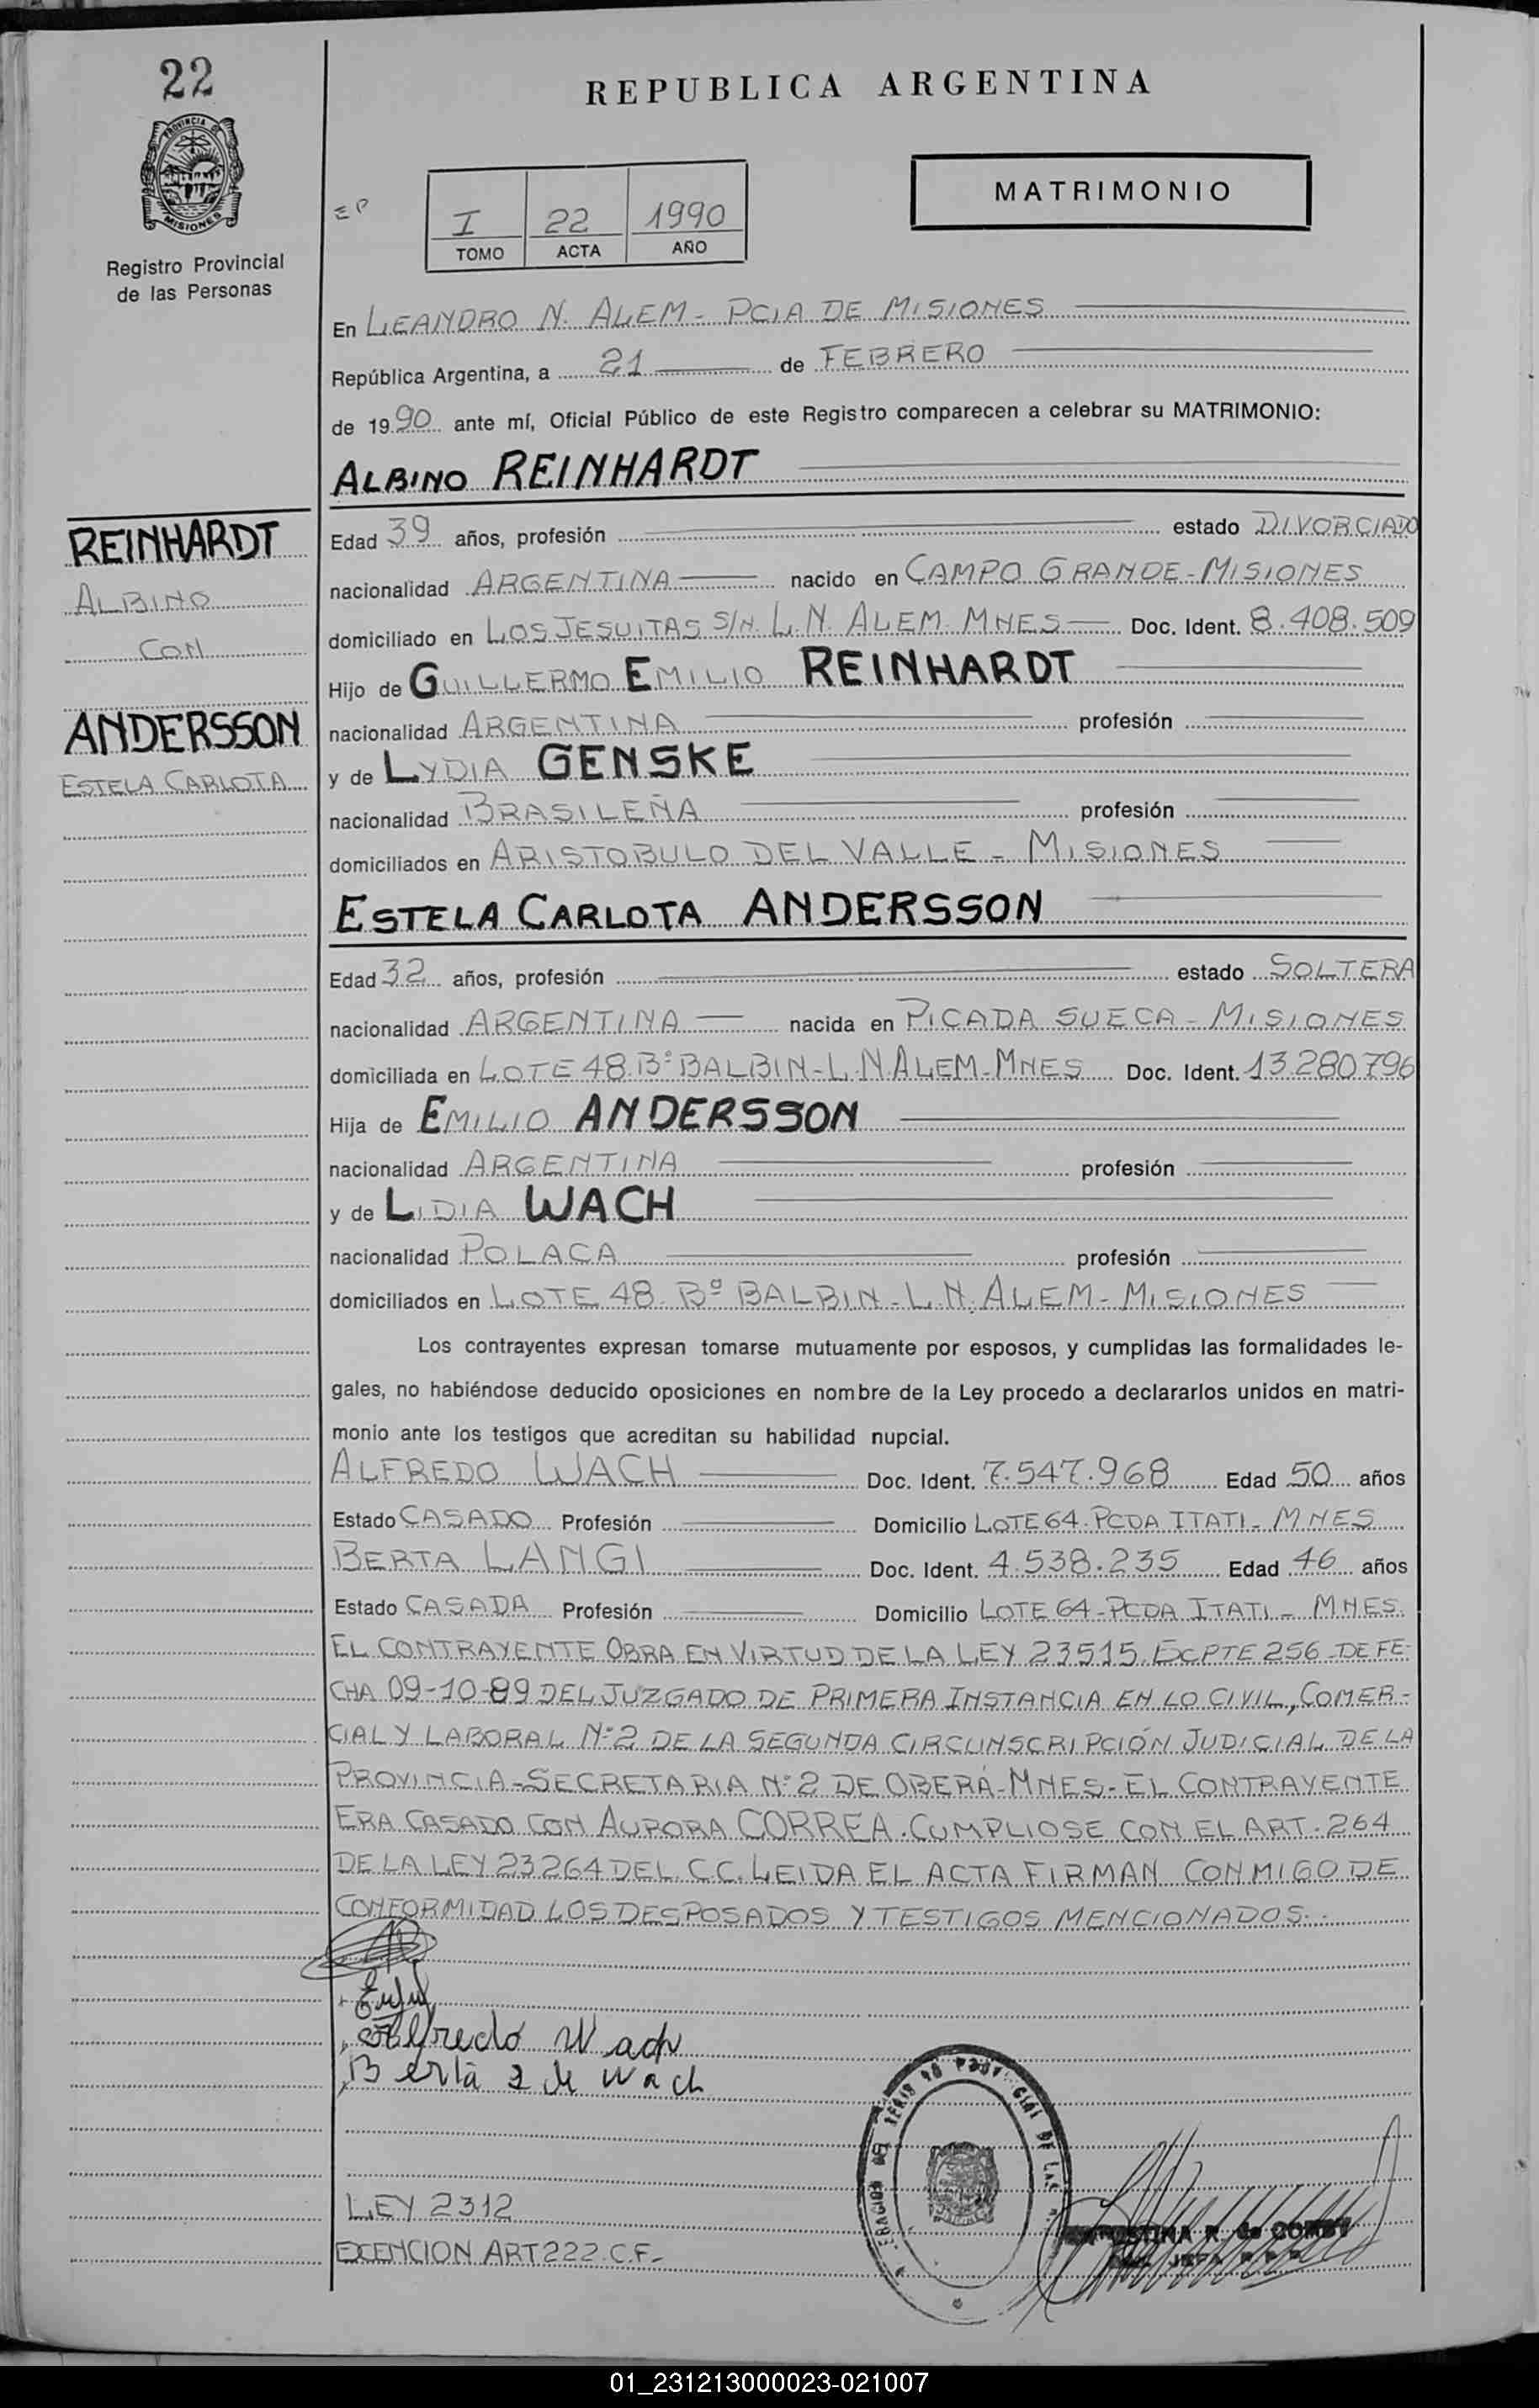 22
PROVINCIA DE
MISIONES
Registro Provincial
de las Personas
REPUBLICA ARGENTINA
MATRIMONIO
EP
I 22 1990
TOMO ACTA AÑO
En LEANDRO N. ALEM - PCIA DE MISIONES
República Argentina, a 21 de FEBRERO
de 1990 ante mí, Oficial Público de este Registro comparecen a celebrar su MATRIMONIO:
ALBINO REINHARDT
REINHARDT
ALBINO
CON
ANDERSSON
ESTELA CARLOTA
Edad 39 años, profesión estado DIVORCIADO
nacionalidad ARGENTINA nacido en CAMPO GRANDE - MISIONES
domiciliado en LOS JESUITAS S/N. L. N. ALEM. MNES Doc. Ident. 8.408.509
Hijo de GUILLERMO EMILIO REINHARDT
nacionalidad ARGENTINA profesión
y de LYDIA GENSKE
nacionalidad BRASILEÑA profesión
domiciliados en ARISTOBULO DEL VALLE - MISIONES
ESTELA CARLOTA ANDERSSON
Edad 32 años, profesión estado SOLTERA
nacionalidad ARGENTINA nacida en PICADA SUECA - MISIONES
domiciliada en LOTE 48. Bº BALBIN - L. N ALEM - MNES Doc. Ident. 13.280.796
Hija de EMILIO ANDERSSON
nacionalidad ARGENTINA profesión
y de LIDIA WACH
nacionalidad POLACA profesión
domiciliados en LOTE 48. Bº BALBIN - L. N. ALEM - MISIONES
Los contrayentes expresan tomarse mutuamente por esposos, y cumplidas las formalidades le-
gales, no habiéndose deducido oposiciones en nombre de la Ley procedo a declararlos unidos en matri-
monio ante los testigos que acreditan su habilidad nupcial.
ALFREDO WACH Doc. Ident. 7.547.968 Edad 50 años
Estado CASADO Profesión Domicilio LOTE 64. PCDA ITATI - MNES
BERTA LANGI Doc. Ident. 4.538.235 Edad 46 años
Estado CASADA Profesión Domicilio LOTE 64 - PCDA ITATI - MNES.
EL CONTRAYENTE OBRA EN VIRTUD DE LA LEY 23515. EXPTE 256 - DE FE-
CHA 09-10-89 DEL JUZGADO DE PRIMERA INSTANCIA EN LO CIVIL, COMER-
CIAL Y LABORAL Nº 2 DE LA SEGUNDA CIRCUNSCRIPCIÓN JUDICIAL DE LA
PROVINCIA - SECRETARIA Nº 2 DE OBERÁ - MNES - EL CONTRAYENTE
ERA CASADO CON AURORA CORREA. CUMPLIOSE CON EL ART. 264
DE LA LEY 23264 DEL C.C. LEIDA EL ACTA FIRMAN CONMIGO DE
CONFORMIDAD LOS DESPOSADOS Y TESTIGOS MENCIONADOS.
Alfredo Wach
Berta L de Wach
LEY 2312
EXENCION ART 222 C.F.-
01_231213000023-021007